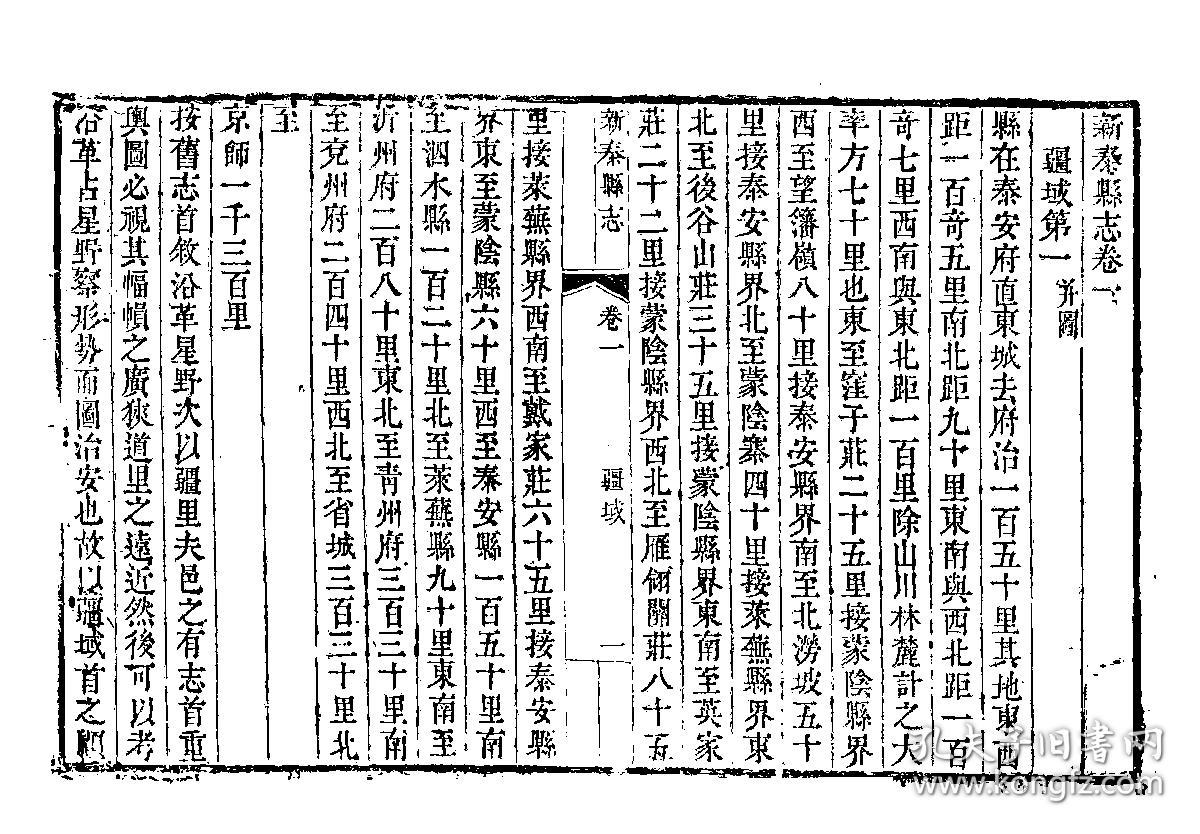 新泰縣志卷一
疆域第一 并圖
縣在泰安府直東城去府治一百五十里其地東西
距一百奇五里南北距九十里東南與西北距一百
奇七里西南與東北距一百里除山川林麓計之大
率方七十里也東至窪子莊二十五里接蒙陰縣界
西至望籓嶺八十里接泰安縣界南至北澇坡五十
里接泰安縣界北至蒙陰寨四十里接萊蕪縣界東
北至後谷山莊三十五里接蒙陰縣界東南至英家
莊二十二里接蒙陰縣界西北至雁翎關莊八十五
新泰縣志 卷一 疆域 一
里接萊蕪縣界西南至戴家莊六十五里接泰安縣
界東至蒙陰縣六十里西至泰安縣一百五十里南
至泗水縣一百二十里北至萊蕪縣九十里東南至
沂州府二百八十里東北至青州府三百三十里南
至兗州府二百四十里西北至省城三百三十里北
至
京師一千三百里
按舊志首敘沿革星野次以疆里夫邑之有志首重
輿圖必視其幅幀之廣狹道里之遠近然後可以考
沿革占星野察形勢而圖治安也故以疆域首之
孔夫子旧书网
www.kongfz.com